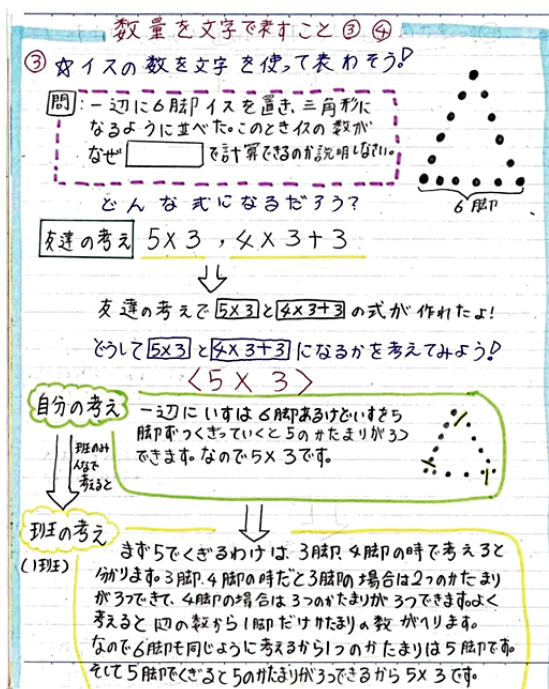 数量を文字で表すこと③④
③ ☆イスの数を文字を使って表わそう!
問:一辺に6脚イスを置き、三角形に
なるように並べた。このときイスの数が
なぜ□で計算できるのか説明しなさい。
6脚
どんな式になるだろう?
友達の考え 5×3, 4×3+3
友達の考えで5×3と4×3+3の式が作れたよ!
どうして5×3と4×3+3になるかを考えてみよう!
〈5×3〉
自分の考え
一辺にいすは6脚あるけどいすを5
脚ずつくぎっていくと5のかたまりが3つ
できます。なので5×3です。
班のみ
んなで
考えると
班の考え
(1班)
まず5でくぎるわけは、3脚、4脚の時で考えると
分かります。3脚、4脚の時だと3脚の場合は2つのかたまり
が3つできて、4脚の場合は3つのかたまりが3つできます。よく
考えると辺の数から1脚だけかたまりの数がへります。
なので6脚も同じように考えるから1つのかたまりは5脚です。
そして5脚でくぎると5のかたまりが3つできるから5×3です。